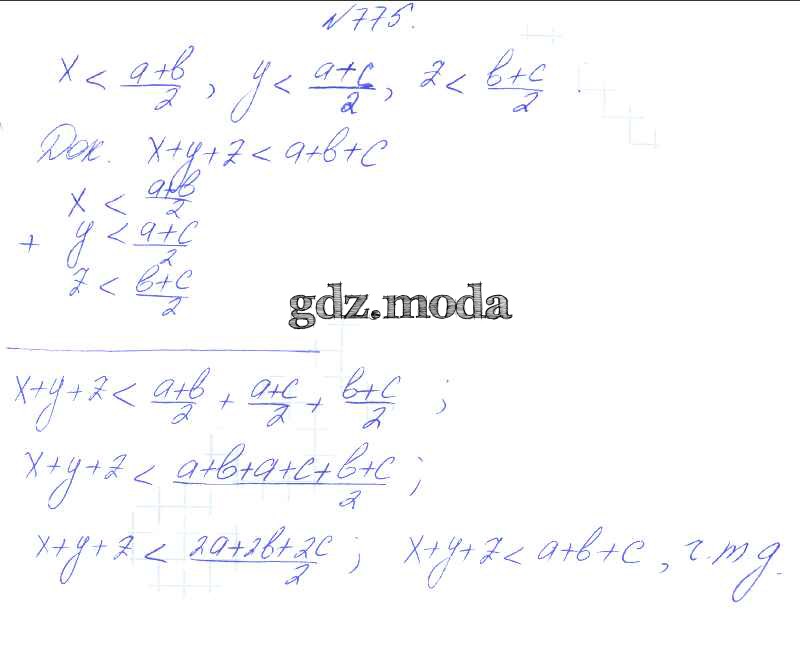 №775.
x < (a+b)/2, y < (a+c)/2, z < (b+c)/2.
Док. x+y+z < a+b+c
x < (a+b)/2
+ y < (a+c)/2
z < (b+c)/2
gdz.moda
x+y+z < (a+b)/2 + (a+c)/2 + (b+c)/2 ;
x+y+z < (a+b+a+c+b+c)/2 ;
x+y+z < (2a+2b+2c)/2 ; x+y+z < a+b+c, ч.т.д.